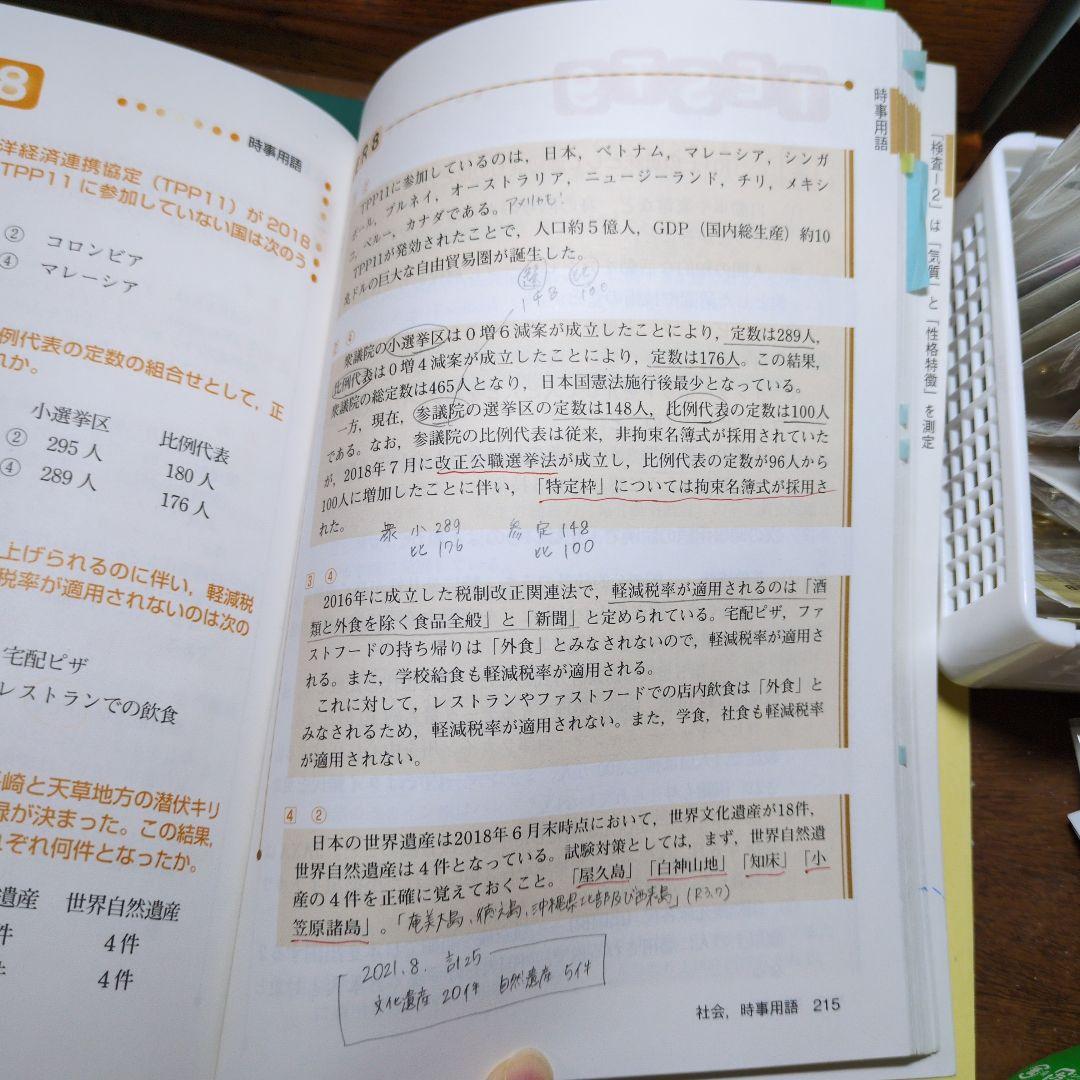 8
時事用語
洋経済連携協定（TPP11）が2018
TPP11に参加していない国は次のう
② コロンビア
④ マレーシア
例代表の定数の組合せとして，正
れか。
小選挙区 比例代表
② 295人 180人
④ 289人 176人
上げられるのに伴い，軽減税
税率が適用されないのは次の
宅配ピザ
レストランでの飲食
崎と天草地方の潜伏キリ
録が決まった。この結果，
ぞれ何件となったか。
遺産 世界自然遺産
件 4件
4件
R 8
TPP11に参加しているのは，日本，ベトナム，マレーシア，シンガ
ポール，ブルネイ，オーストラリア，ニュージーランド，チリ，メキシ
コ，ペルー，カナダである。アメリカも！
TPP11が発効されたことで，人口約５億人，GDP（国内総生産）約10
兆ドルの巨大な自由貿易圏が誕生した。
選 比
148 100
④
衆議院の小選挙区は０増６減案が成立したことにより，定数は289人，
比例代表は０増４減案が成立したことにより，定数は176人。この結果，
衆議院の総定数は465人となり，日本国憲法施行後最少となっている。
一方，現在，参議院の選挙区の定数は148人，比例代表の定数は100人
である。なお，参議院の比例代表は従来，非拘束名簿式が採用されていた
が，2018年７月に改正公職選挙法が成立し，比例代表の定数が96人から
100人に増加したことに伴い，「特定枠」については拘束名簿式が採用さ
れた。
衆 小 289 参 定 148
比 176 比 100
3 ④
2016年に成立した税制改正関連法で，軽減税率が適用されるのは「酒
類と外食を除く食品全般」と「新聞」と定められている。宅配ピザ，ファ
ストフードの持ち帰りは「外食」とみなされないので，軽減税率が適用さ
れる。また，学校給食も軽減税率が適用される。
これに対して，レストランやファストフードでの店内飲食は「外食」と
みなされるため，軽減税率が適用されない。また，学食，社食も軽減税率
が適用されない。
4 ②
日本の世界遺産は2018年６月末時点において，世界文化遺産が18件，
世界自然遺産は４件となっている。試験対策としては，まず，世界自然遺
産の４件を正確に覚えておくこと。「屋久島」「白神山地」「知床」「小
笠原諸島」。「奄美大島、徳之島、沖縄県北部及び西表島」(R3.7)
2021.8. 計25
文化遺産 20件 自然遺産 5件
社会，時事用語 215
時事用語
「検査Ⅰ２」は「気質」と「性格特徴」を測定